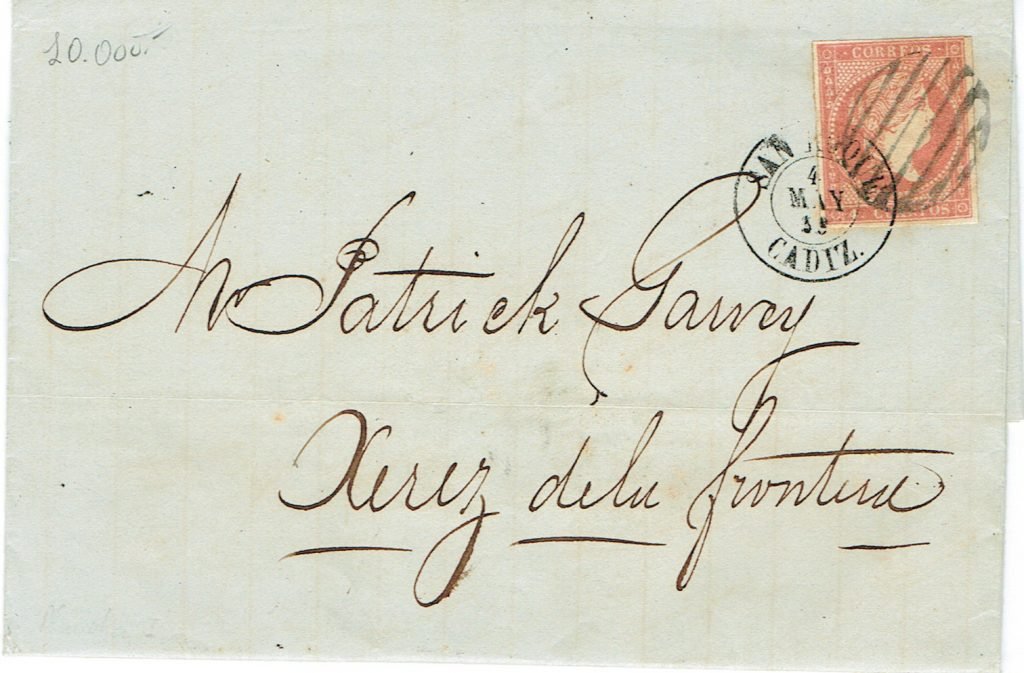 20.000
CORREOS
4 CUARTOS
SAN ROQUE
4
MAY
CADIZ.
Mr Patrick Garvey
Xerez de la frontera